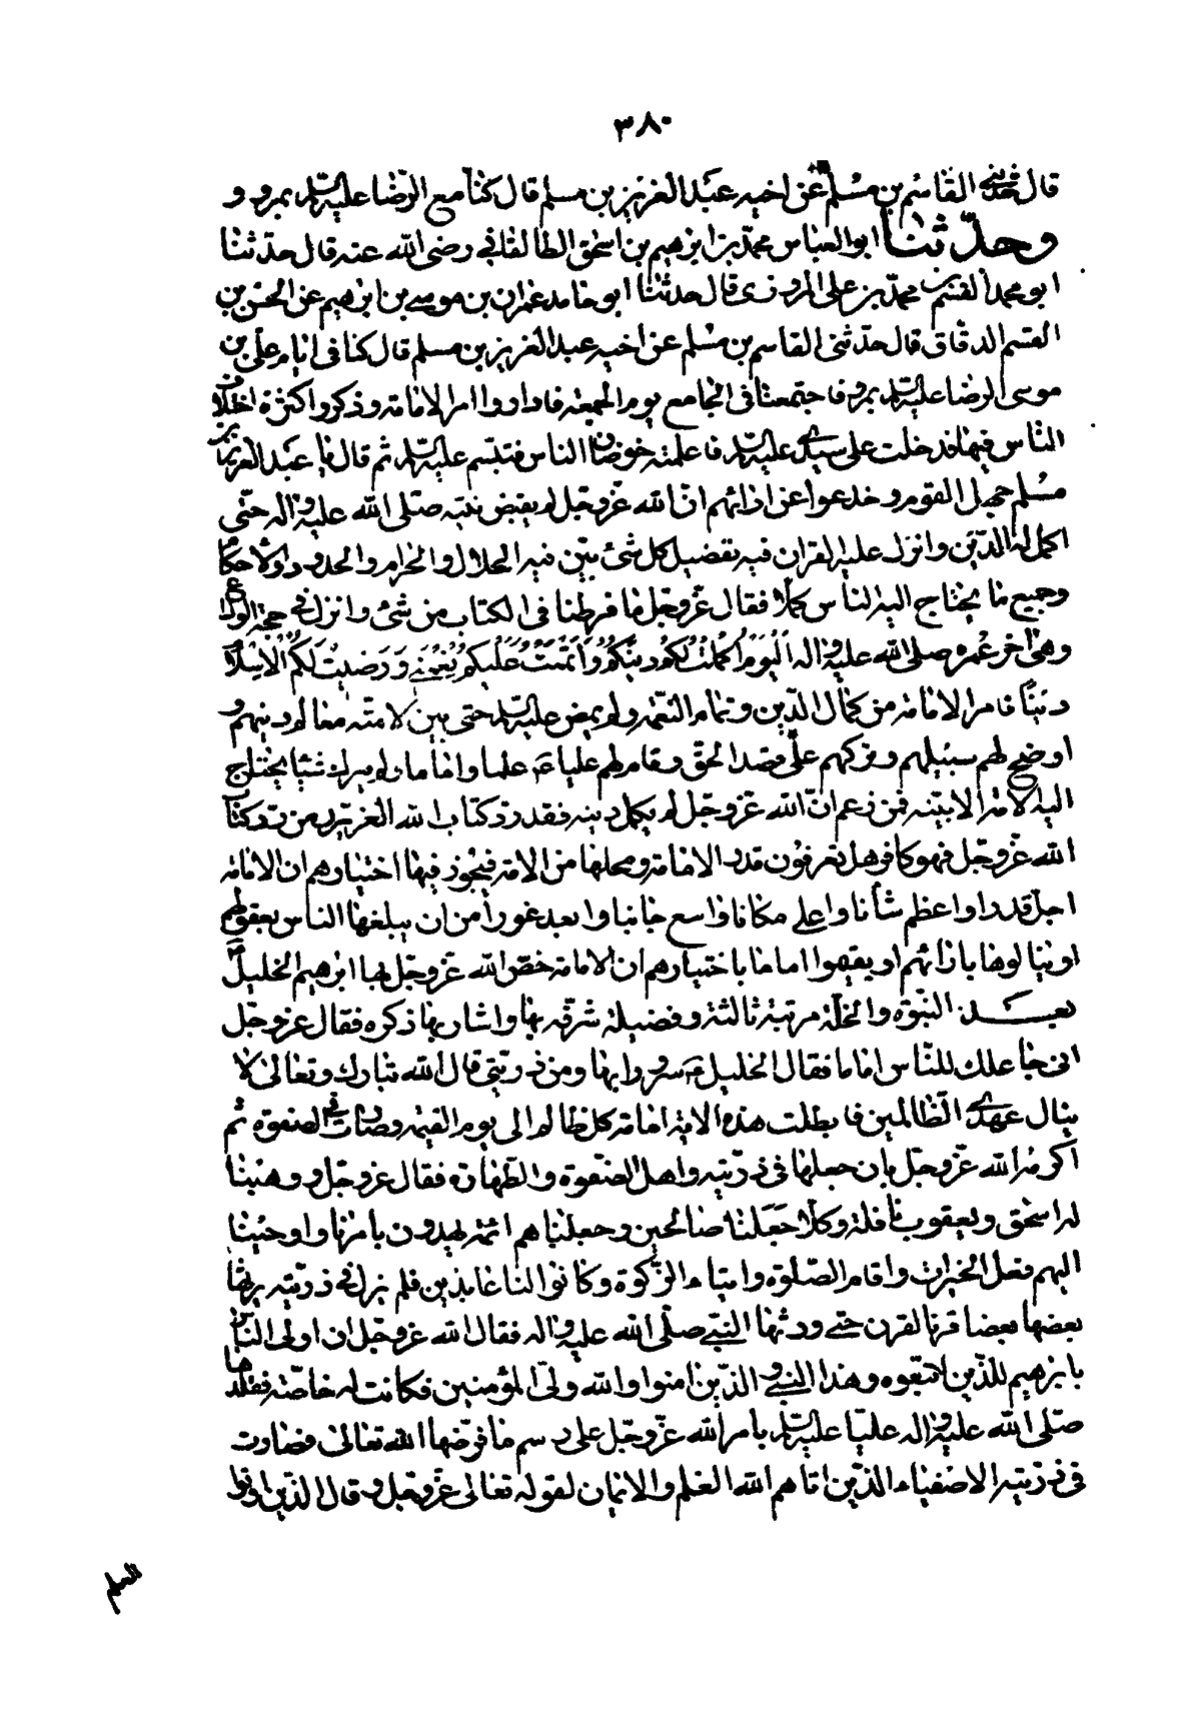 ٣٨٠
قال حدثنى القاسم بن مسلم عن اخيه عبد العزيز بن مسلم قال كنا مع الرضا عليه السلم بمرو و
وحدّثنا ابو العباس محمد بن ابرهيم بن اسحق الطالقانى رضى الله عنه قال حدثنا
ابو محمد القسم بن محمد بن على المروزى قال حدثنا ابو حامد عمران بن موسى بن ابرهيم عن الحسن بن
القسم الدقاق قال حدثنى القاسم بن مسلم عن اخيه عبد العزيز بن مسلم قال كنا فى ايام على بن
موسى الرضا عليه السلم بمرو فاجتمعنا فى الجامع يوم الجمعة فاداروا امر الامامة وذكروا كثرة اختلاف
الناس فيها فدخلت على سيدى عليه السلم فاعلمته خوضان الناس فتبسم عليه السلم ثم قال يا عبد العزيز بن
مسلم جهل القوم وخدعوا عن اديانهم ان الله عز وجل لم يقبض نبيه صلى الله عليه واله حتى
اكمل له الدين وانزل عليه القران فيه تفصيل كل شئ بيّن فيه الحلال والحرام والحدود والاحكام
وجميع ما يحتاج اليه الناس كملا فقال عز وجل ما فرطنا فى الكتاب من شئ وانزل فى حجة الوداع
وهى اخر عمره صلى الله عليه واله اليوم اكملت لكم دينكم واتممت عليكم نعمتى ورضيت لكم الاسلام
دينا فامر الامامة من كمال الدين وتمام النعمة ولم يمض عليه السلم حتى بين لامته معالم دينهم و
اوضح لهم سبيلهم وتركهم على قصد الحق وقام لهم عليا ع علما واماما وما لم يترك شيئا يحتاج
اليه الامة الا بينه فمن زعم ان الله عز وجل لم يكمل دينه فقد رد كتاب الله العزيز ومن رد كتاب
الله عز وجل فهو كافر هل تعرفون قدر الامامة ومحلها من الامة فيجوز فيها اختيارهم ان الامامة
اجل قدرا واعظم شأنا واعلى مكانا واسع جانبا وابعد غورا من ان يبلغها الناس بعقولهم
او ينالوها بارائهم او يقيموا اماما باختيارهم ان الامامة خص الله عز وجل بها ابرهيم الخليل ع
بعد النبوة والخلة مرتبة ثالثة وفضيلة شرّفه بها واشار بها ذكره فقال عز وجل
انى جاعلك للناس اماما فقال الخليل ع سرورا بها ومن ذريتى قال الله تبارك وتعالى لا
ينال عهدى الظالمين فابطلت هذه الاية امامة كل ظالم الى يوم القيمة وصارت فى الصفوة ثم
اكرمه الله عز وجل بان جعلها فى ذريته واهل الصفوة والطهارة فقال عز وجل ووهبنا
له اسحق ويعقوب نافلة وكلا جعلنا صالحين وجعلناهم ائمة يهدون بامرنا واوحينا
اليهم فعل الخيرات واقام الصلوة وايتاء الزكوة وكانوا لنا عابدين فلم يزل فى ذريته يرثها
بعضها بعضا قرنا لقرن حتى ورثها النبى صلى الله عليه واله فقال الله عز وجل ان اولى الناس
بابرهيم للذين اتبعوه وهذا النبى والذين امنوا والله ولى المؤمنين فكانت له خاصة فقلدها
صلى الله عليه واله عليا عليه السلم بامر الله عز وجل على رسم ما فرضها الله تعالى فصارت
فى ذريته الاصفياء الذين اتاهم الله العلم والايمان لقوله تعالى عز وجل وقال الذين اوتوا
العلم